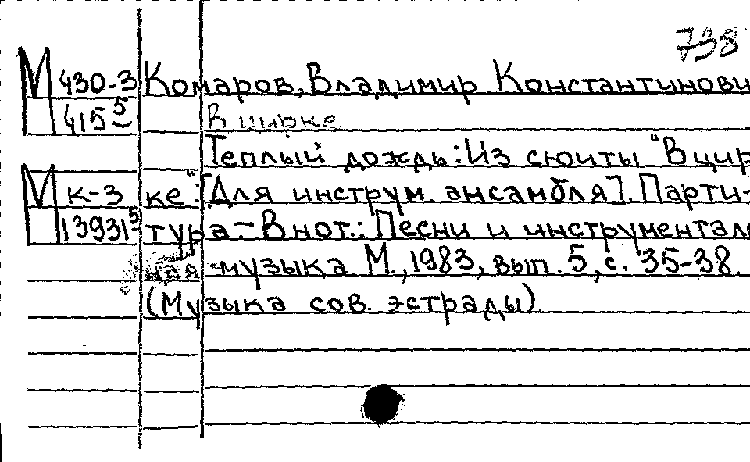 738
М 430-3 Комаров, Владимир Константинови
415⁵ В цирке
Теплый дождь: Из сюиты "В цир
М к-3 ке": [Для инструм. ансамбля]. Парти-
13931⁵ тура.- В нот.: Песни и инструментал
ная музыка М., 1983, вып. 5, с. 35-38.
(Музыка сов. эстрады).